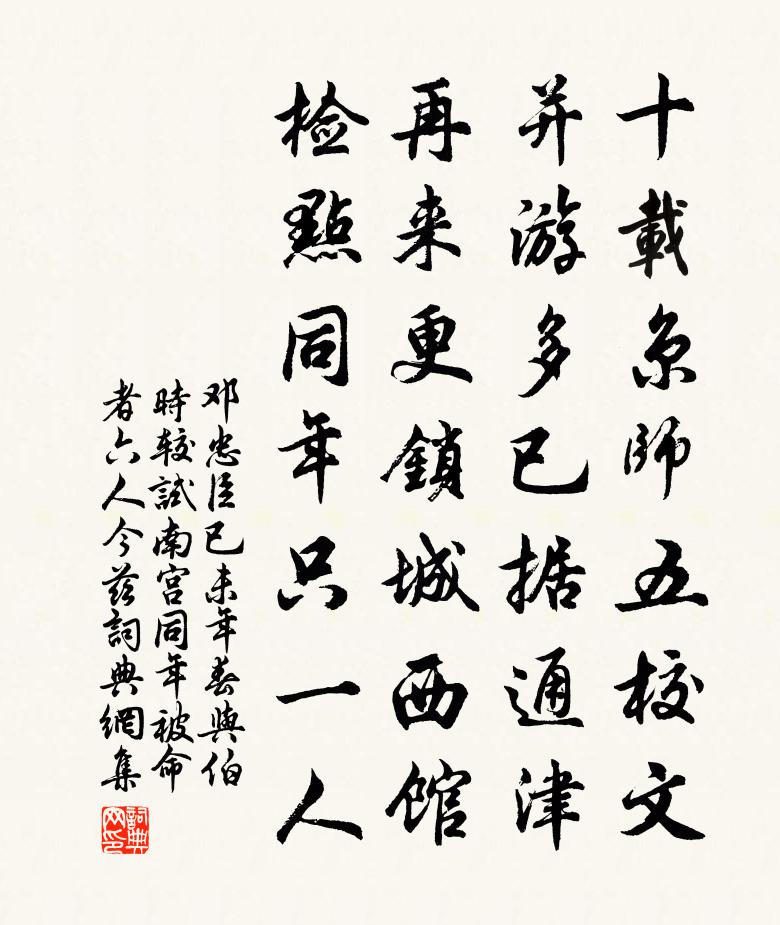 十載京師五校文
并游多已据通津
再来更鎖城西館
捡點同年只一人
邓忠臣已未年春與伯
時較試南宫同年被命
者六人今兹詞典網集
詞典网印